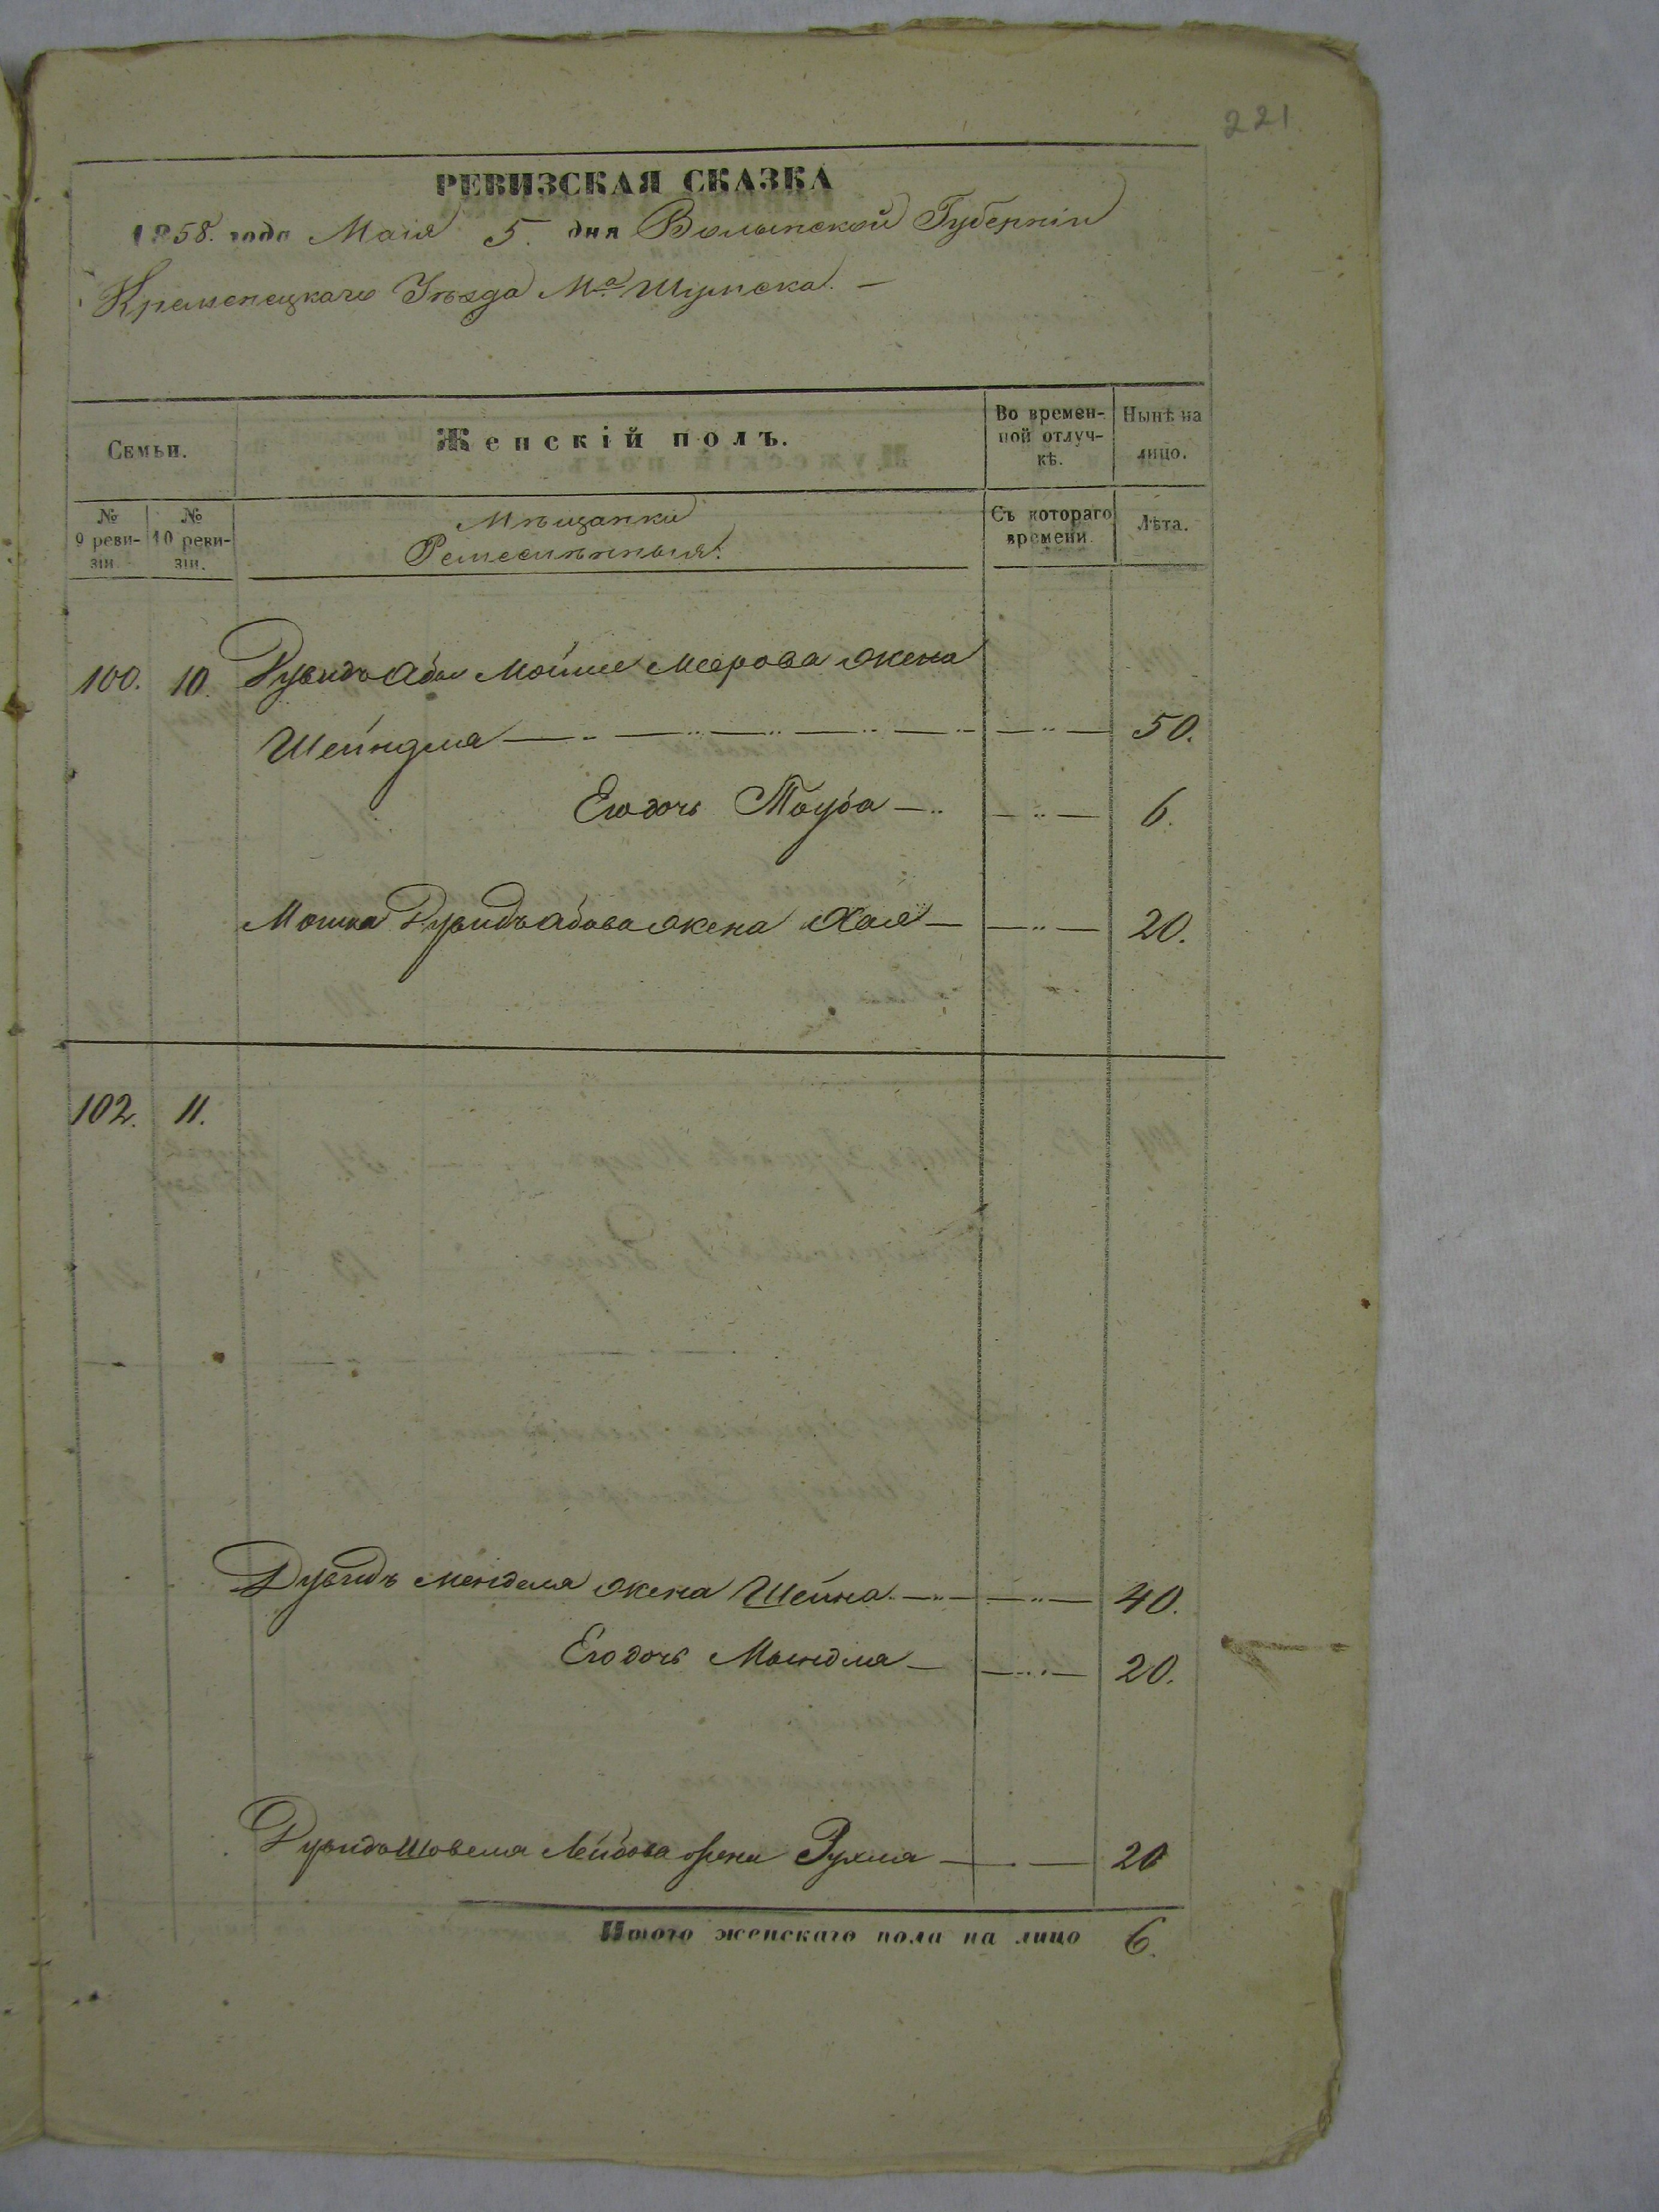 221
РЕВИЗСКАЯ СКАЗКА
1858. года Маія 5. дня Волынской Губерніи
Кременецкаго Уѣзда М-а Шумска. —
Семьи.
Женскій полъ.
Во времен-
ной отлуч-
кѣ.
Нынѣ на
лицо.
№
9 реви-
зіи
№
10 реви-
зіи.
Мѣщанки
Ремесленныя.
Съ котораго
времени.
Лѣта.
100. 10. Дувидъ Абы Мойше Меерова жена
Шейндля — 50.
Его дочь Тауба — 6.
Мошка Дувидъ Абова жена Хая — 20.
102. 11.
Дувидъ Менделя жена Шейна — 40.
Его дочь Маындля — 20.
Дувидъ Шовеля Лейбова жена Рухля — 20
Итого женскаго пола на лицо 6.